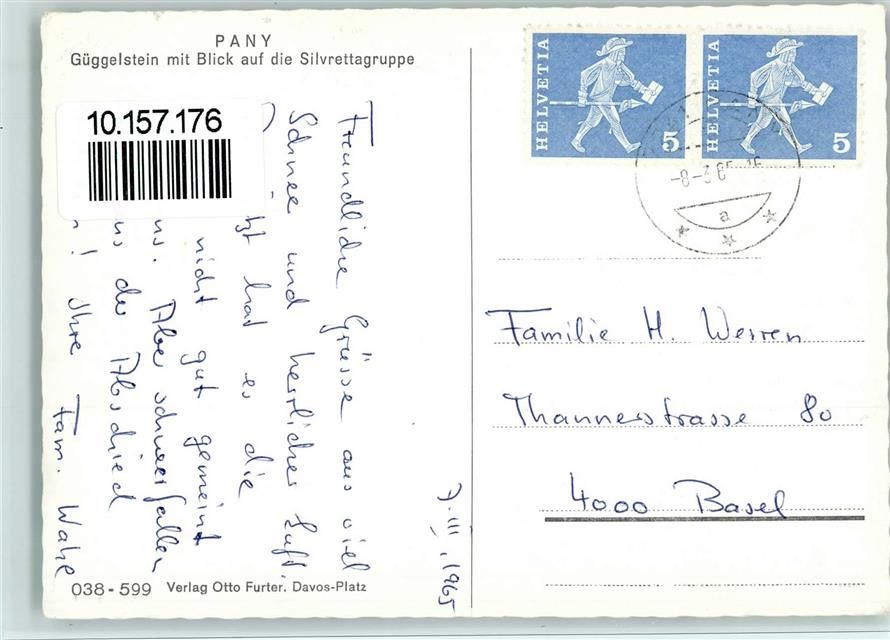 PANY
Güggelstein mit Blick auf die Silvrettagruppe
10.157.176
7.III.1965
Freundliche Grüsse aus viel
Schnee und herrlicher Luft.
hat es die
nicht gut gemeint
uns. Aber schwer fallen
uns der Abschied
! Ihre Fam.
038-599 Verlag Otto Furter, Davos-Platz
HELVETIA 5
HELVETIA 5
-8-3 65-16
a
Familie H. Werren
Thannerstrasse 80
4000 Basel